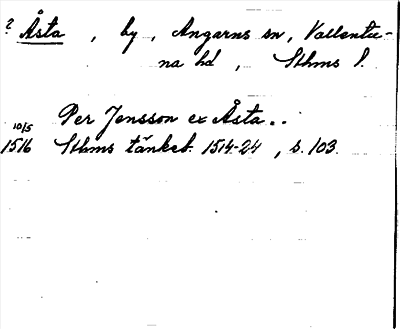 ? Åsta, by, Angarns sn, Vallentu-
na hd, Sthms l.
Per Jensson ex Åsta..
10/5
1516 Sthms tänkeb. 1514-24, s. 103.